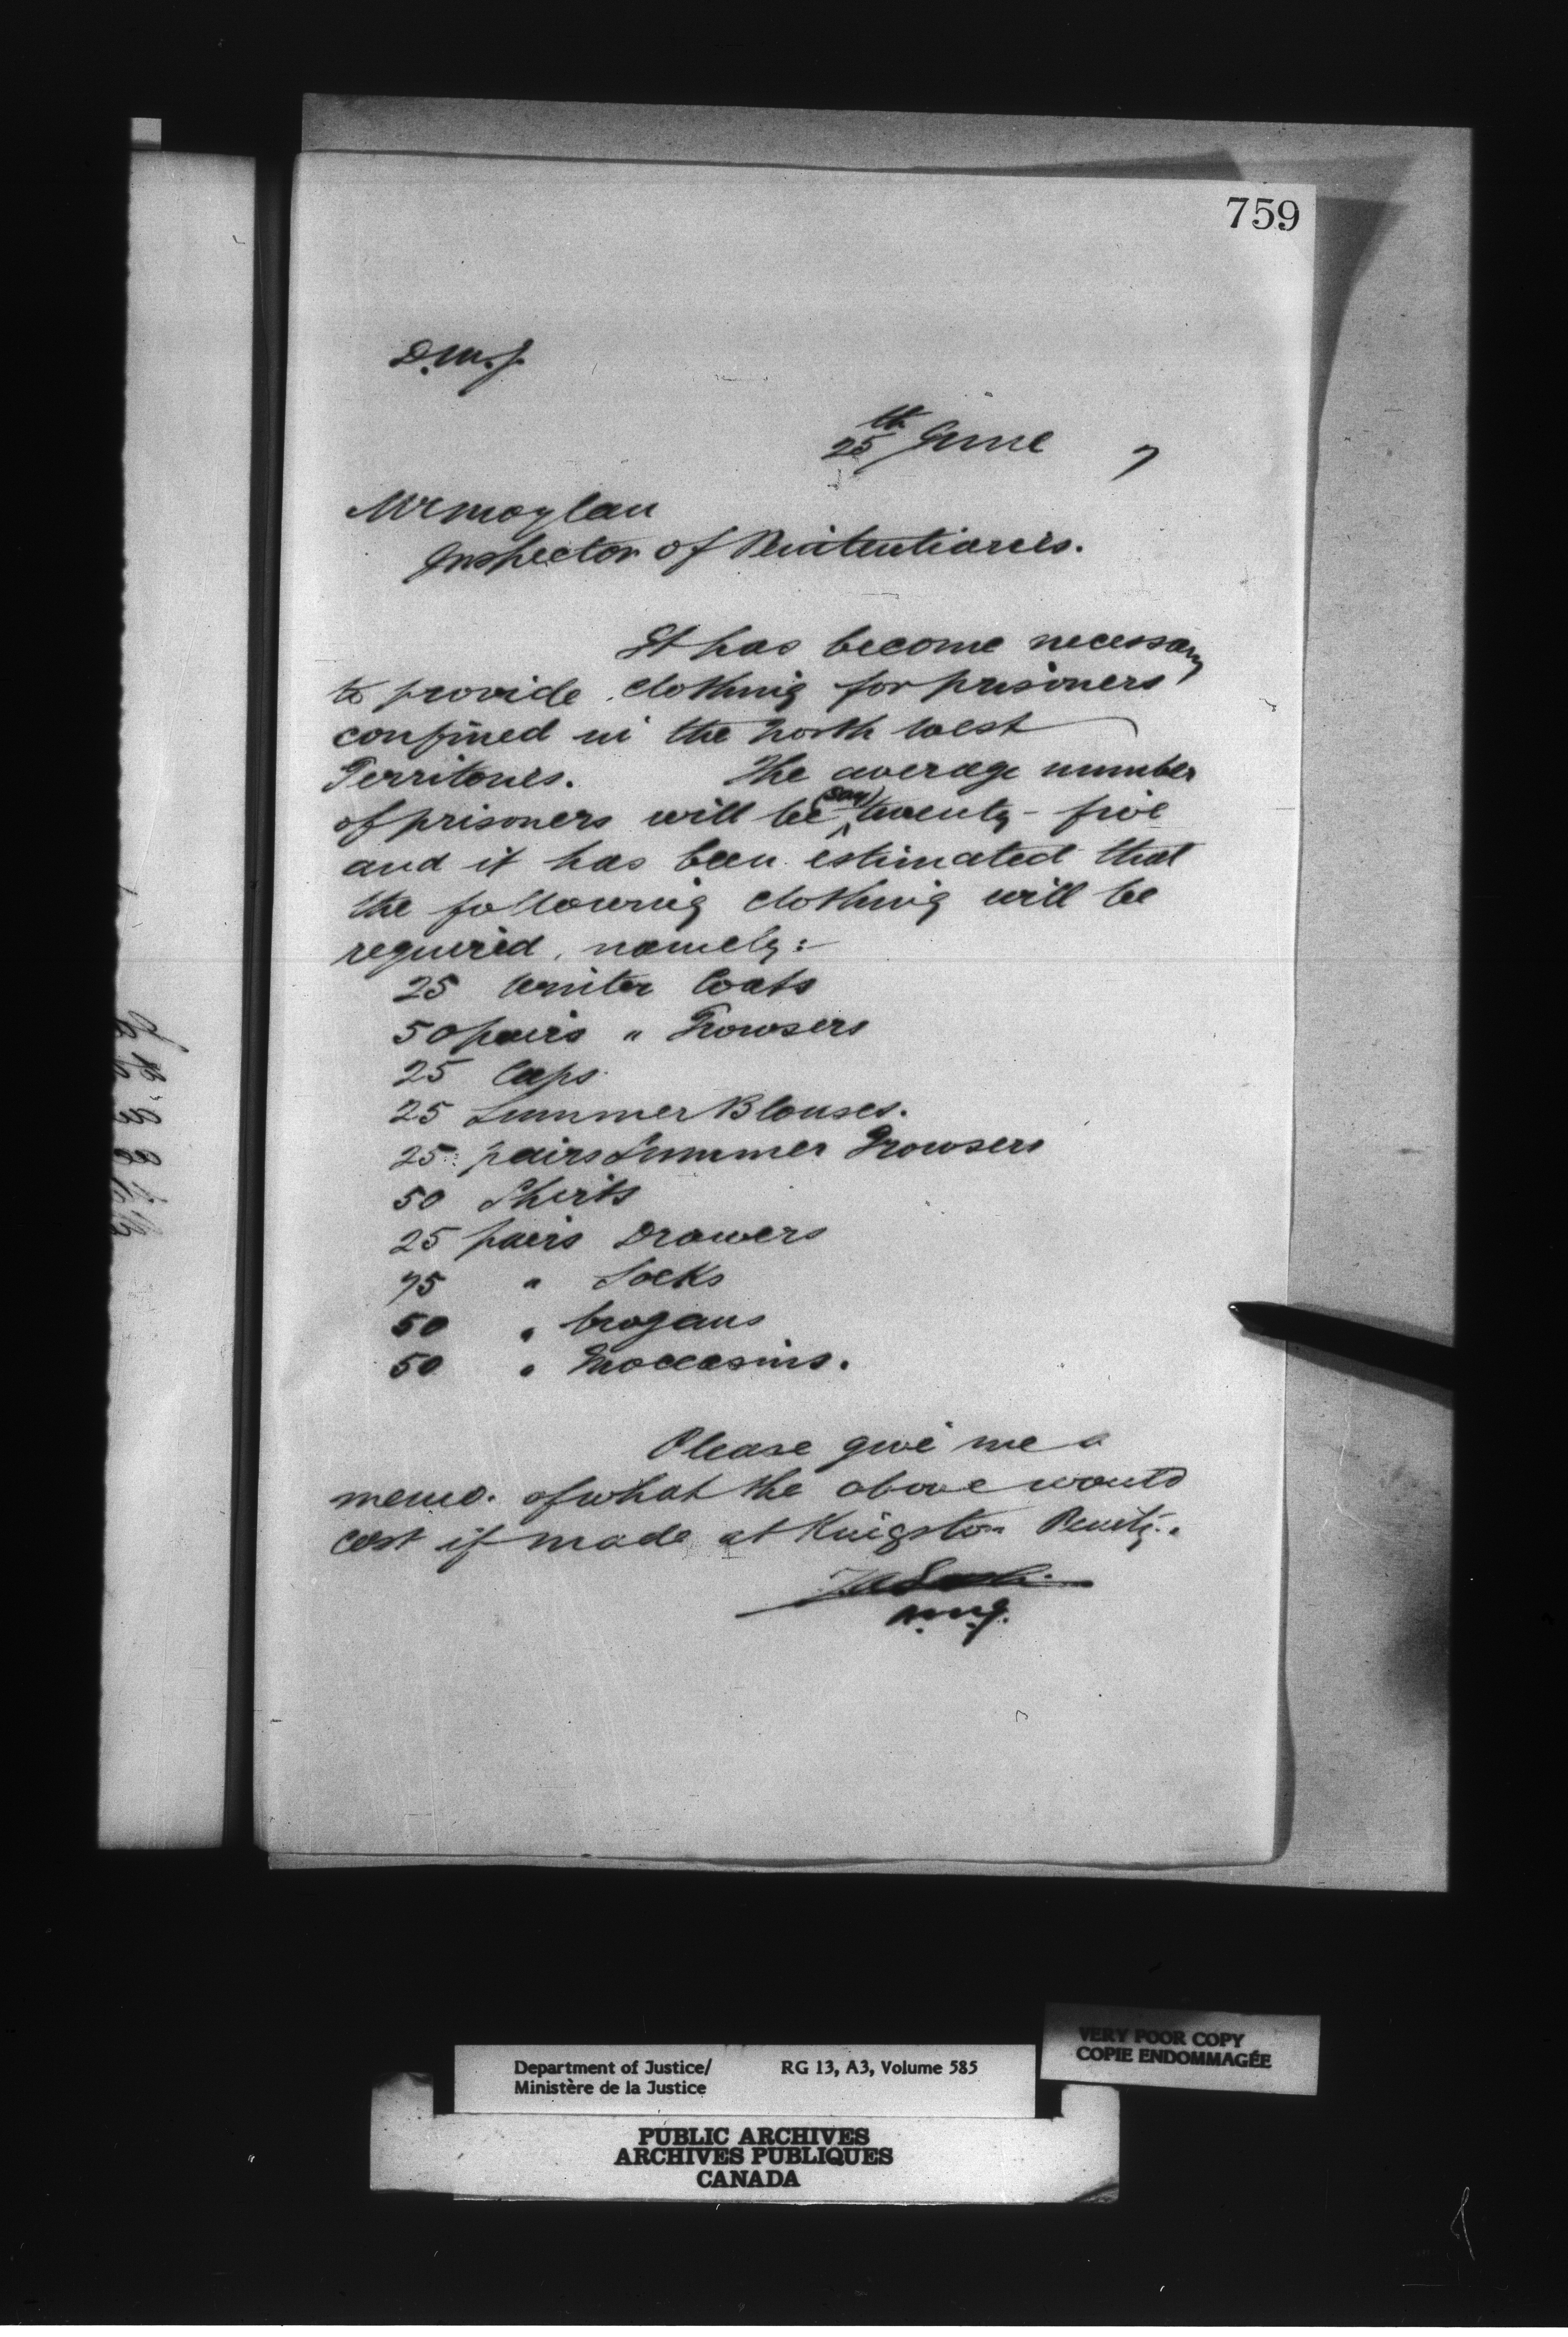 759
D.M.J.
25th June 7
Mr Moylan
Inspector of Penitentiaries.
It has become necessary
to provide clothing for prisoners
confined in the North West
Territories. The average number
of prisoners will be (say) twenty-five
and it has been estimated that
the following clothing will be
required, namely:-
25 Winter Coats
50 pairs " Trowsers
25 Caps
25 Summer Blouses.
25 pairs Summer Trowsers
50 Shirts
25 pairs Drawers
75 " Socks
50 " brogans
50 " Moccasins.
Please give me a
memo. of what the above would
cost if made at Kingston Penity.
VERY POOR COPY
COPIE ENDOMMAGÉE
Department of Justice/ RG 13, A3, Volume 585
Ministère de la Justice
PUBLIC ARCHIVES
ARCHIVES PUBLIQUES
CANADA